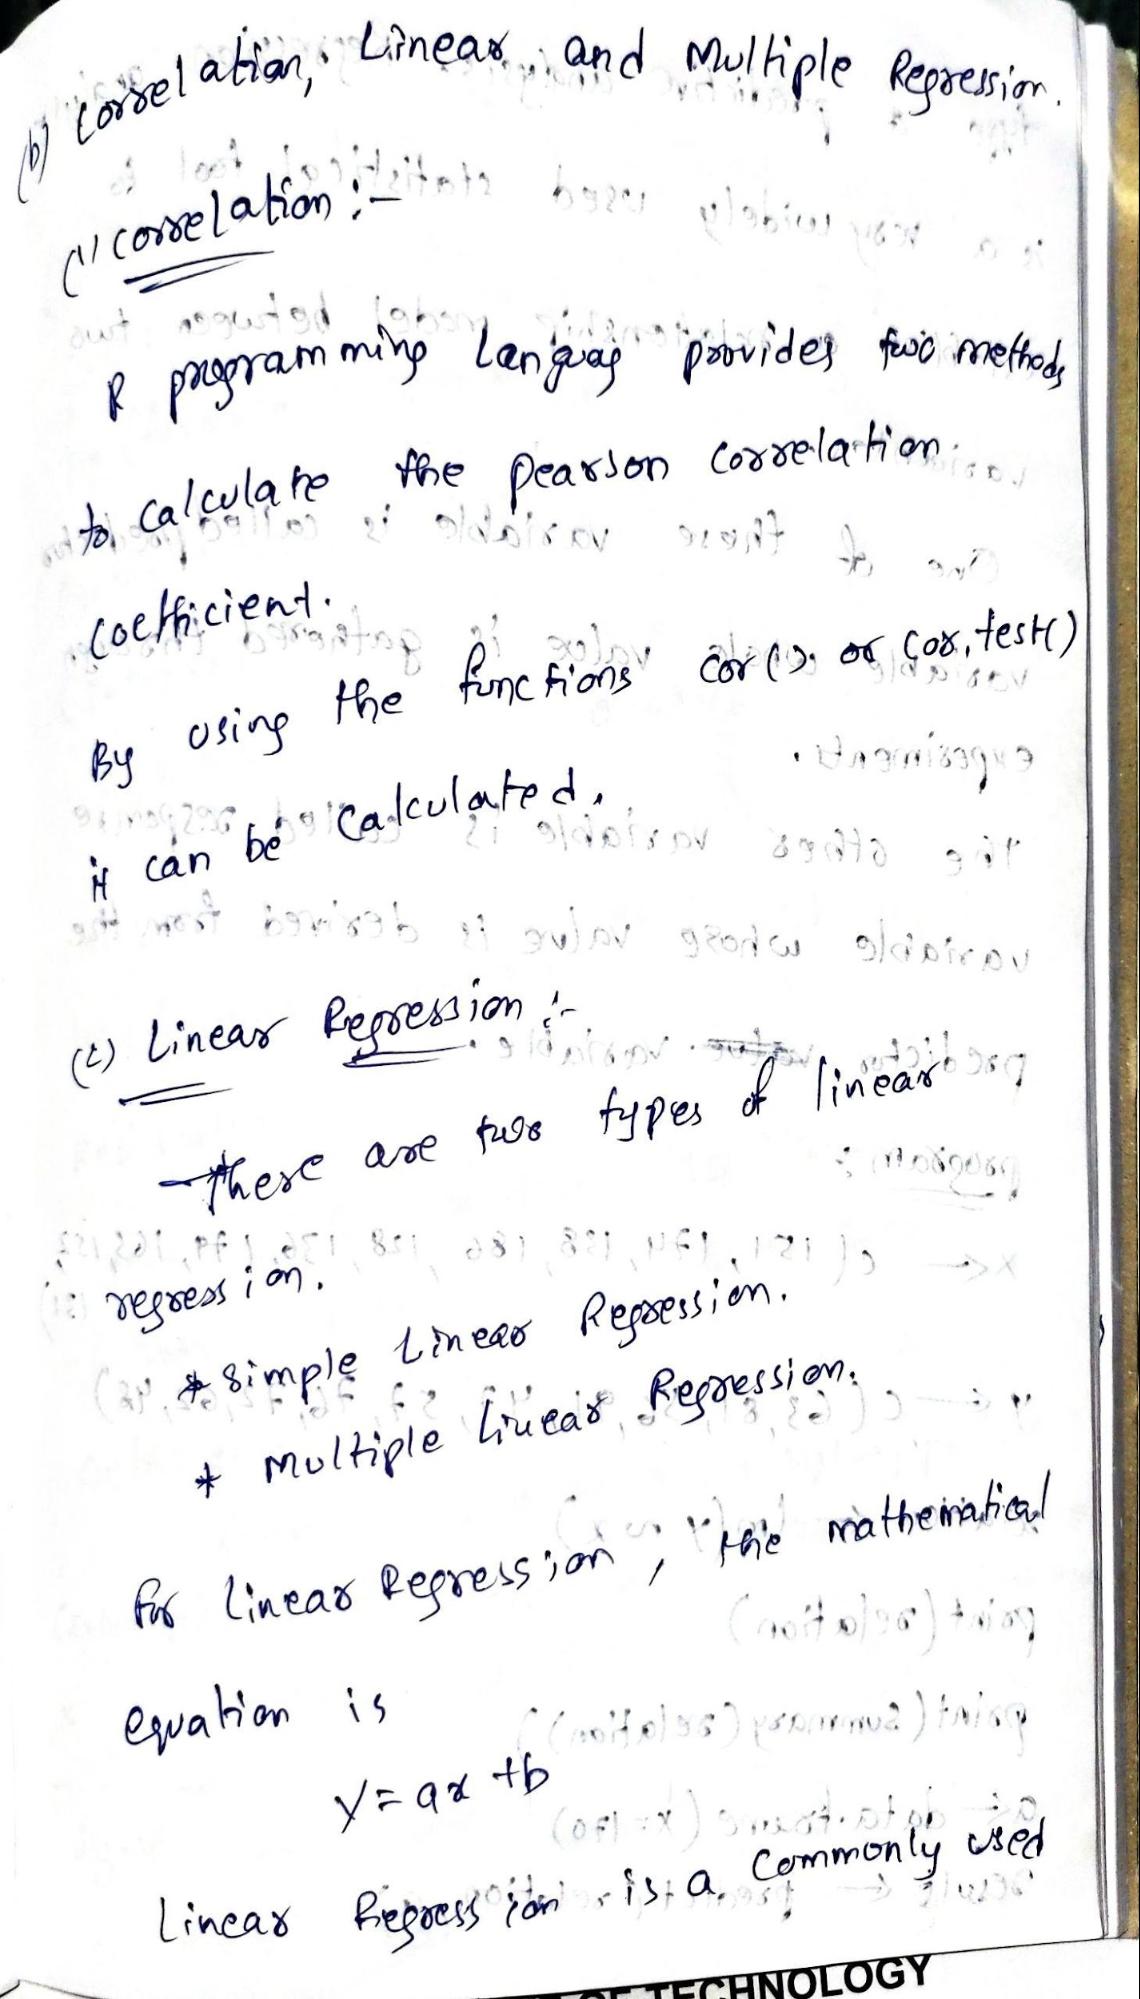 (b) Correlation, Linear and Multiple Regression.
(1) correlation :-
R programming Languag provides two methods
to calculate the pearson correlation
coefficient.
By using the functions cor() or cor.test()
it can be calculated.
(2) Linear Regression :-
There are two types of linear
regression.
* Simple Linear Regression.
* Multiple Linear Regression.
for linear Regression, the mathematical
equation is
Y = ax + b
Linear Regression is a commonly used
OF TECHNOLOGY